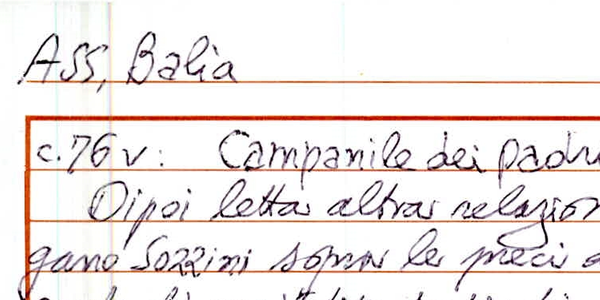 ASS, Balìa
c. 76 v: Campanile dei padri
Dipoi letta altra relazion
gano Sozzini sopra le preci